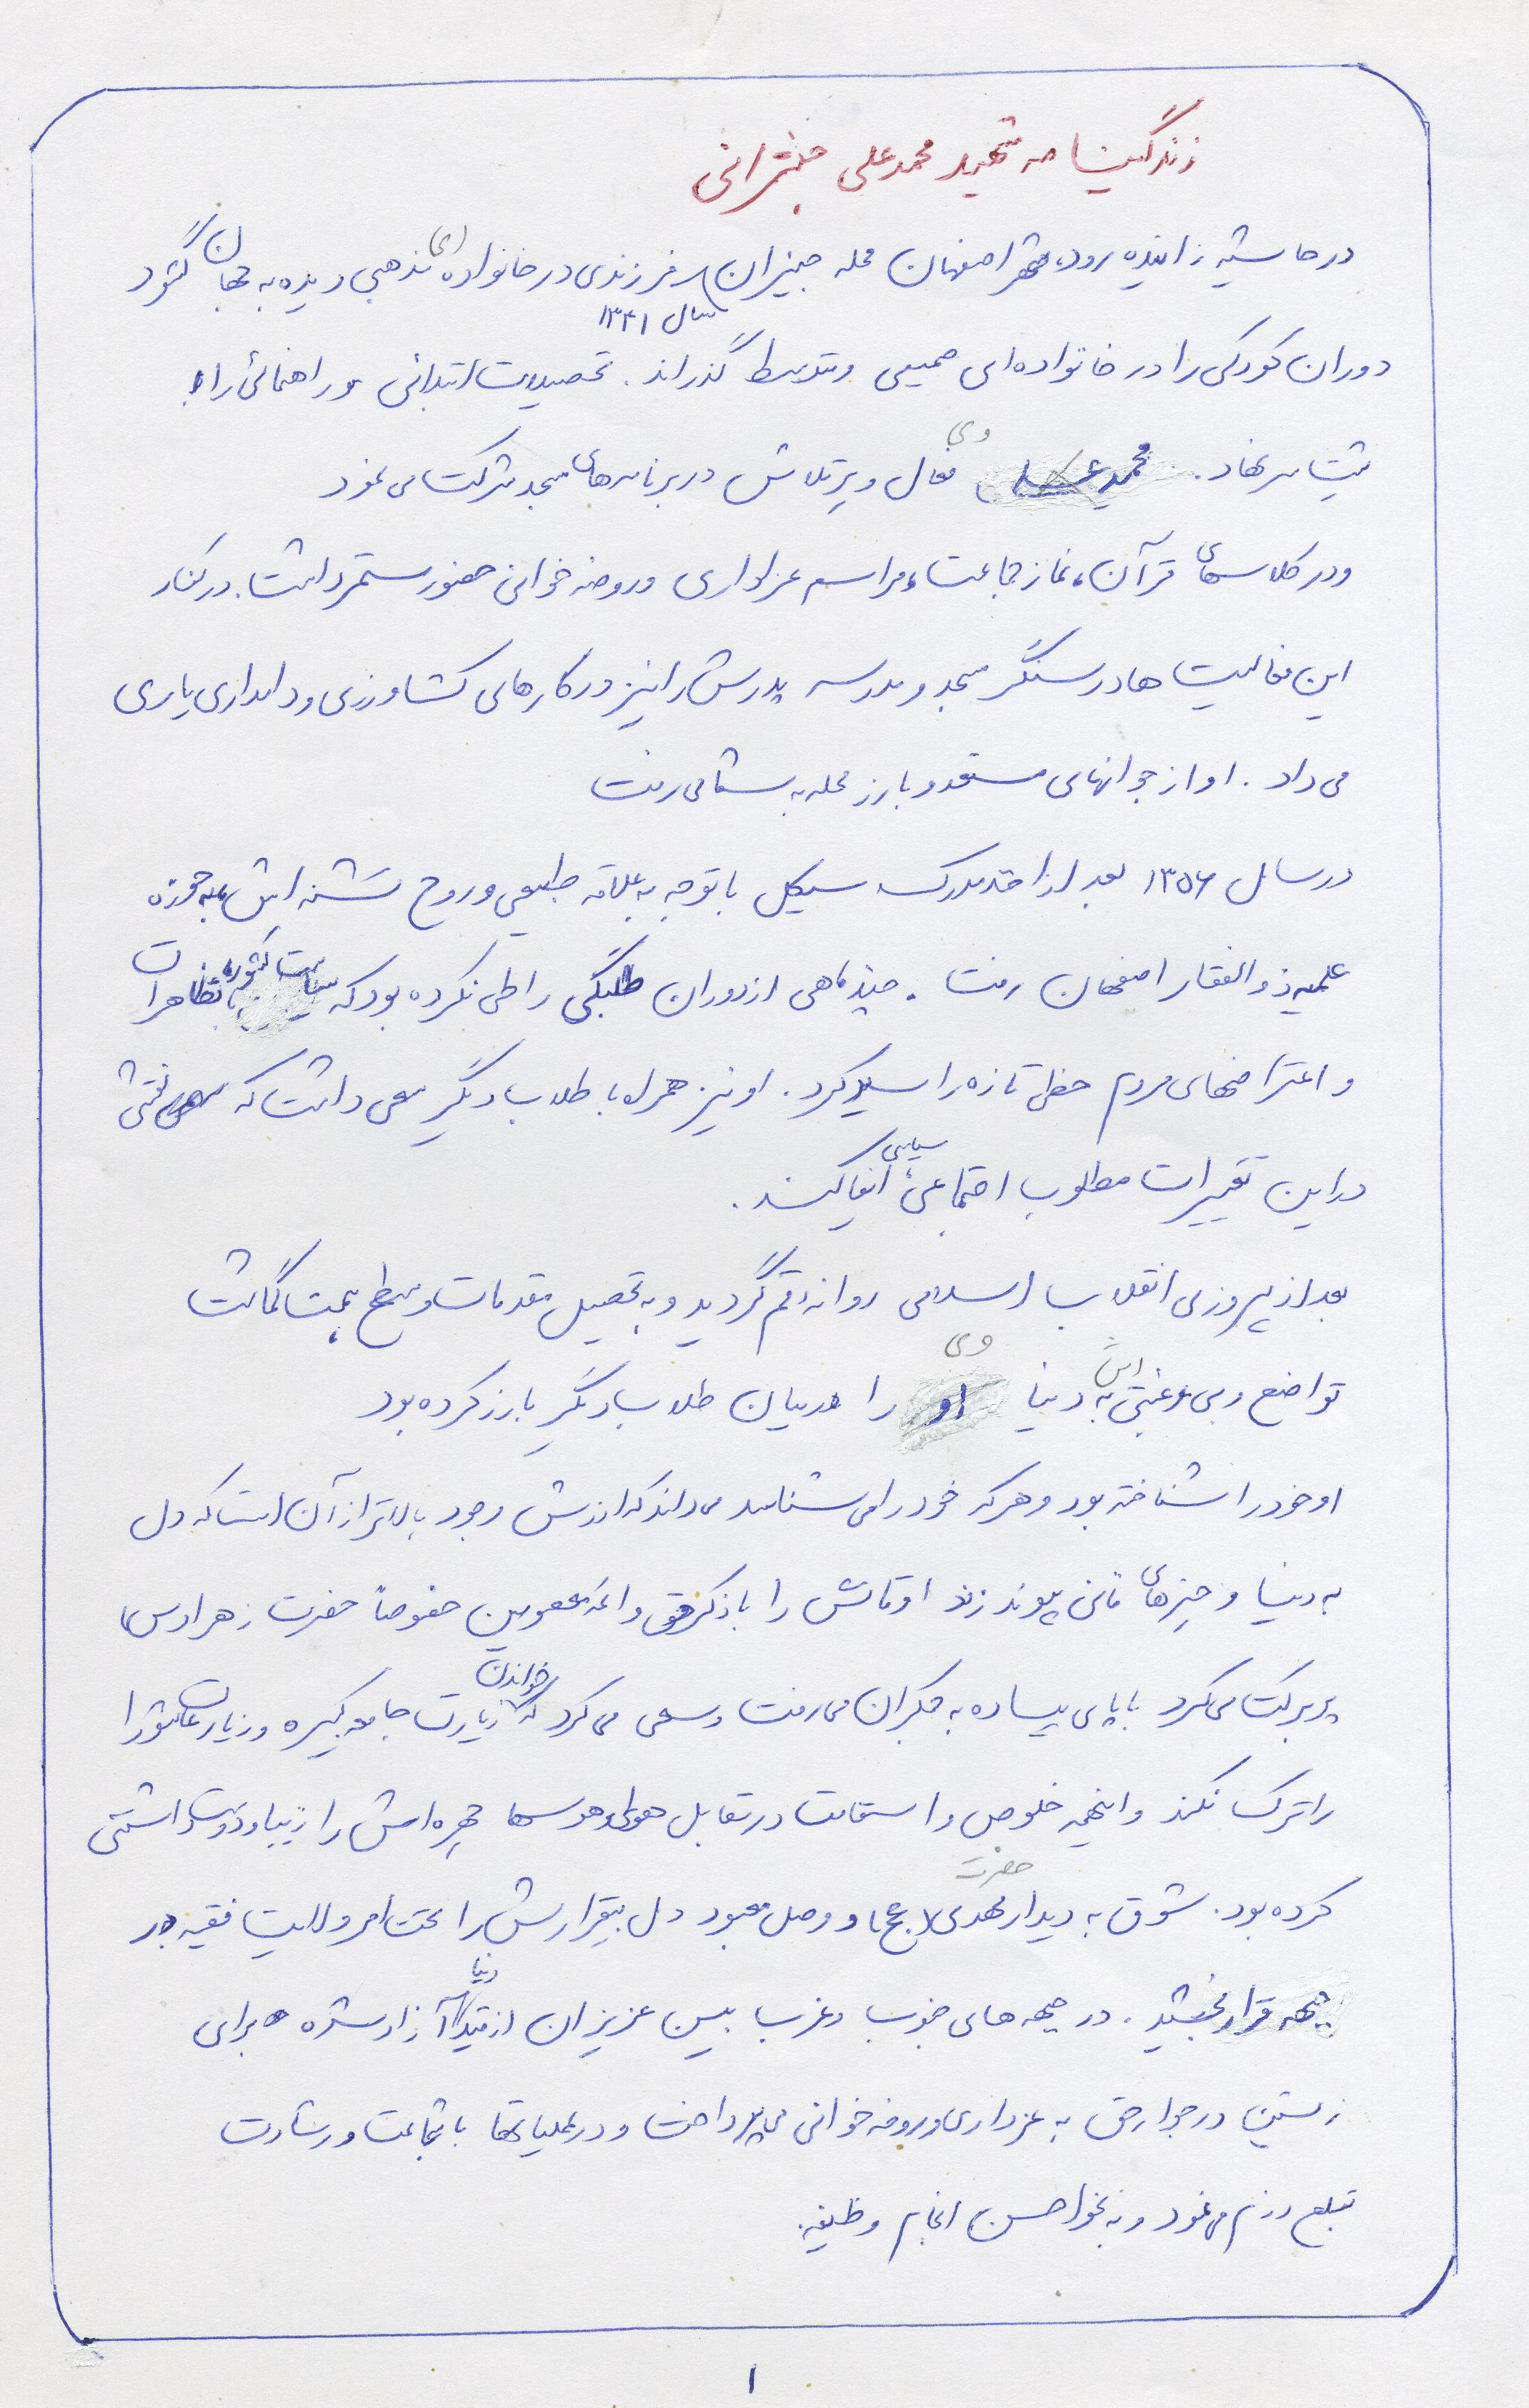 زندگینامه شهید محمدعلی جنثرانی
در حاشیه زاینده رود، شهر اصفهان محله جیزان سال ۱۳۴۱ فرزندی در خانواده (ای) مذهبی دیده به جهان گشود
دوران کودکی را در خانواده‌ای صمیمی و متوسط گذراند. تحصیلات ابتدائی و راهنمائی را
پشت سر نهاد. محمد علی وی فعال و پرتلاش در برنامه‌های مسجد شرکت می نمود
و در کلاسهای قرآن، نماز جماعت، مراسم عزاداری و روضه خوانی حضور مستمر داشت. در کنار
این فعالیت ها در سنگر مسجد و مدرسه پدرش را نیز در کارهای کشاورزی و دامداری یاری
می داد. او از جوانهای مستعد و بارز محله به شمار می رفت
در سال ۱۳۵۶ بعد از اخذ مدرک سیکل با توجه به علاقه طبیعی و روح تشنه اش به حوزه
علمیه ذوالفقار اصفهان رفت. چند ماهی از دوران طلبگی را طی نکرده بود که سیاست کشور با تظاهرات
و اعتراضهای مردم خطی تازه را سپری کرد. او نیز همراه با طلاب دیگر سعی داشت که نقشی
در این تغییرات مطلوب اجتماعی سیاسی ایفا کنند.
بعد از پیروزی انقلاب اسلامی روانه قم گردید و به تحصیل مقدمات و سطح همت گماشت
تواضع و بی رغبتی اش به دنیا او وی را در میان طلاب دیگر بارز کرده بود
او خود را شناخته بود و هر که خود را می شناسد می داند که ارزش وجود بالاتر از آن است که دل
به دنیا و چیزهای فانی پیوند زند اوقاتش را با ذکر حق و ائمه معصومین خصوصاً حضرت زهرا (س)
پر برکت می کرد با پای پیاده به جمکران می رفت و سعی می کرد که خواندن زیارت جامعه کبیره و زیارت عاشورا
را ترک نکند و اینهمه خلوص و استقامت در مقابل هوی و هوسها چهره اش را زیبا و دوست داشتنی
کرده بود. شوق به دیدار حضرت مهدی (عج) و وصل معبود دل بیقرارش را تحت امر ولایت فقیه در
جبهه قرار بخشید. در جبهه های جنوب و غرب بین عزیزان از قید دنیا آزاد شده برای
زیستن در جوار حق به عزاداری و روضه خوانی می پرداخت و در عملیاتها با شجاعت و رشادت
تبلیغ رزم می نمود و به نحو احسن انجام وظیفه.
۱